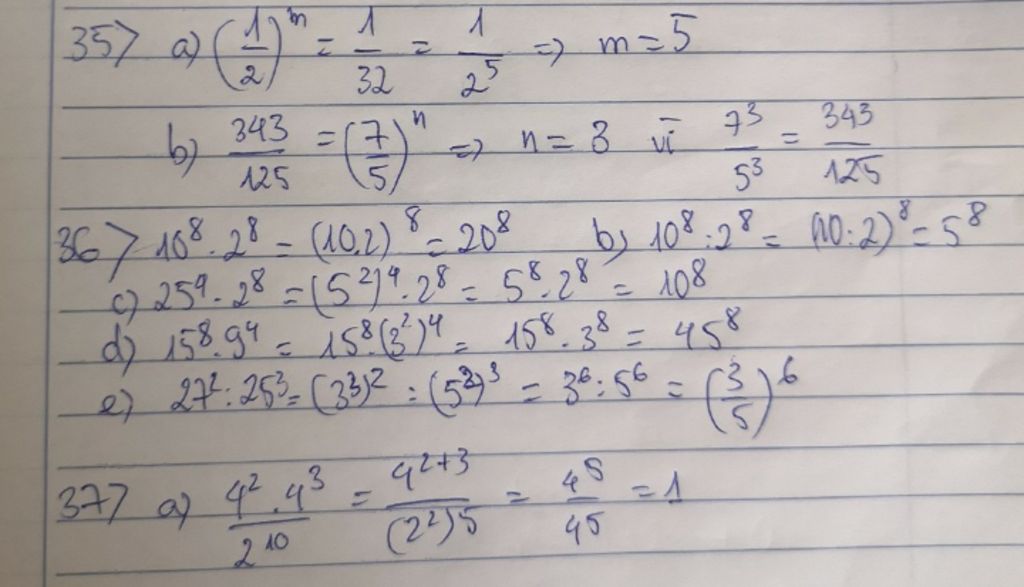 35> a) (1/2)^m = 1/32 = 1/2^5 => m = 5
b) 343/125 = (7/5)^n => n = 3 vì 7^3/5^3 = 343/125
36> 10^8 . 2^8 = (10.2)^8 = 20^8 b) 10^8 : 2^8 = (10:2)^8 = 5^8
c) 25^4 . 2^8 = (5^2)^4 . 2^8 = 5^8 . 2^8 = 10^8
d) 15^8 . 9^4 = 15^8.(3^2)^4 = 15^8 . 3^8 = 45^8
e) 27^2 : 25^3 = (3^3)^2 : (5^2)^3 = 3^6 : 5^6 = (3/5)^6
37> a) 4^2 . 4^3/2^10 = 4^2+3/(2^2)^5 = 4^5/4^5 = 1